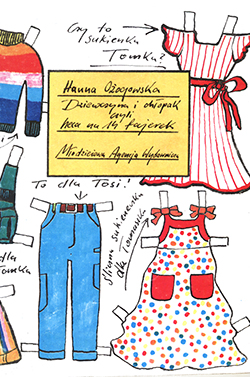 Czy to
sukienka
Tomka?
Hanna Ożogowska
Dziewczyna i chłopak
czyli
heca na 14 fajerek
Młodzieżowa Agencja Wydawnicza
To dla Tosi!
dla
Tomka
śliczna sukieneczka
dla Tomaszka